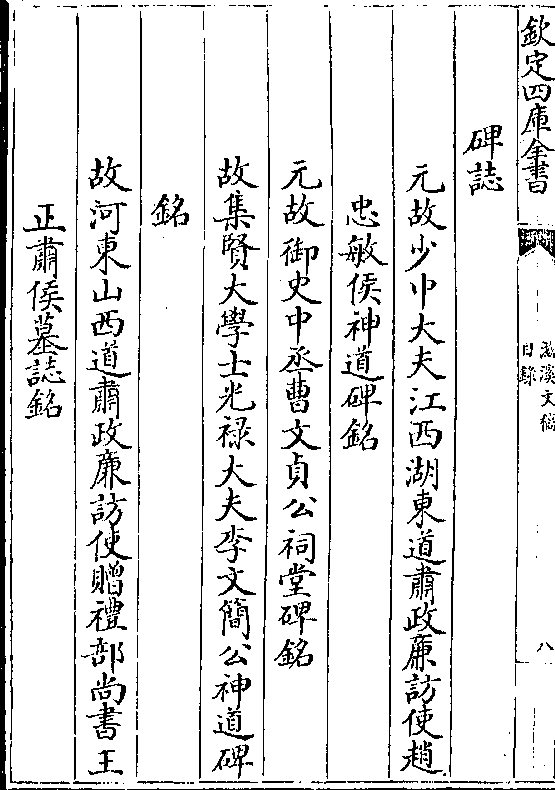 欽定四庫全書
滋溪文稿
目錄
八
碑誌
元故少中大夫江西湖東道肅政廉訪使趙
忠敏侯神道碑銘
元故御史中丞曹文貞公祠堂碑銘
故集賢大學士光祿大夫李文簡公神道碑
銘
故河東山西道肅政廉訪使贈禮部尚書王
正肅侯墓誌銘